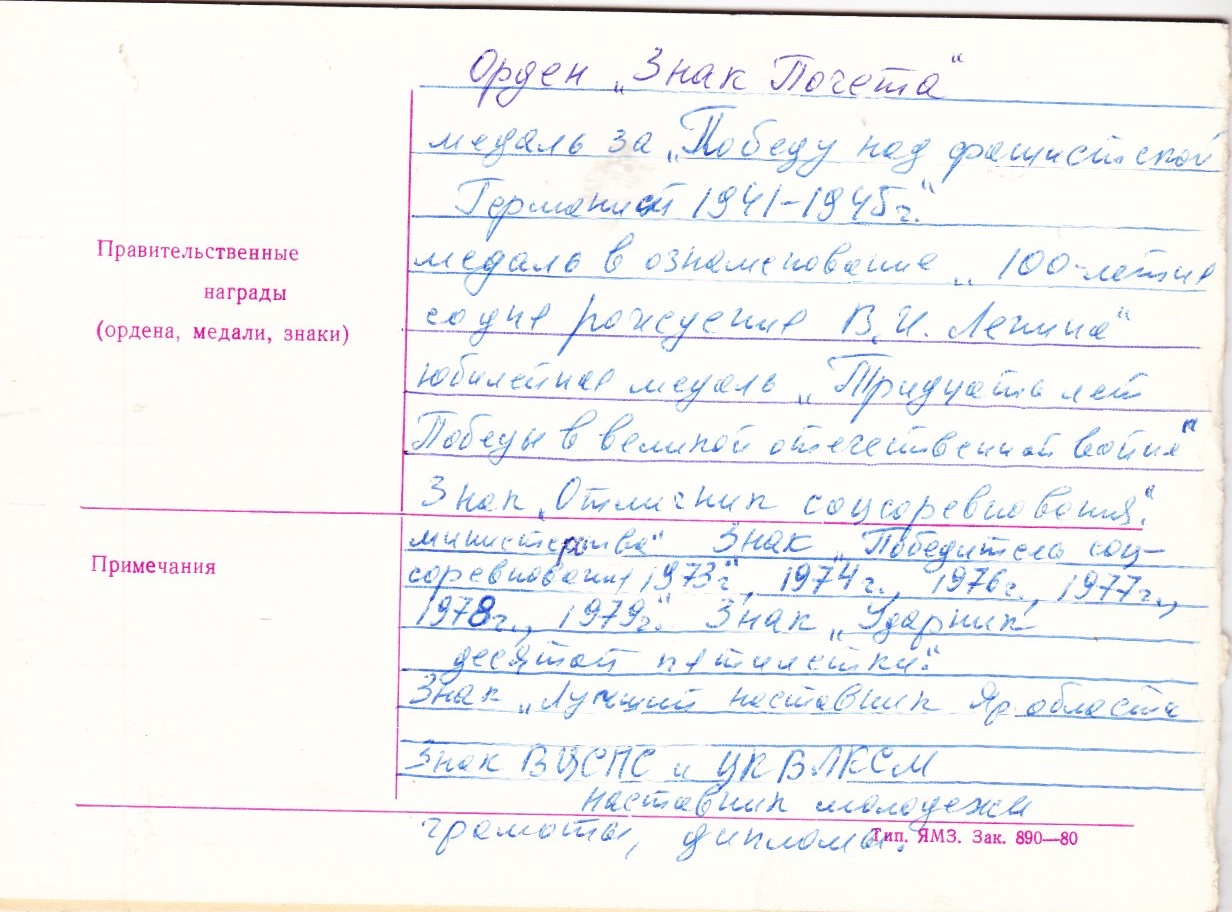 Орден „Знак Почета“
медаль за „Победу над фашистской
Германией 1941-1945г.“
Правительственные
награды
(ордена, медали, знаки)
медаль в ознаменование „100-летия
со дня рождения В.И. Ленина“
юбилейная медаль „Тридцать лет
Победы в великой отечественной войне“
Знак „Отличник соцсоревнования
Примечания
министерства“ Знак „Победитель соц-
соревнования 1973г“, 1974г., 1976г., 1977г.,
1978г., 1979г.“ Знак „Ударник
десятой пятилетки“.
Знак „Лучший наставник Яр. области
Знак ВЦСПС и ЦК ВЛКСМ
наставник молодежи
грамоты, дипломы.
Тип. ЯМЗ. Зак. 890—80